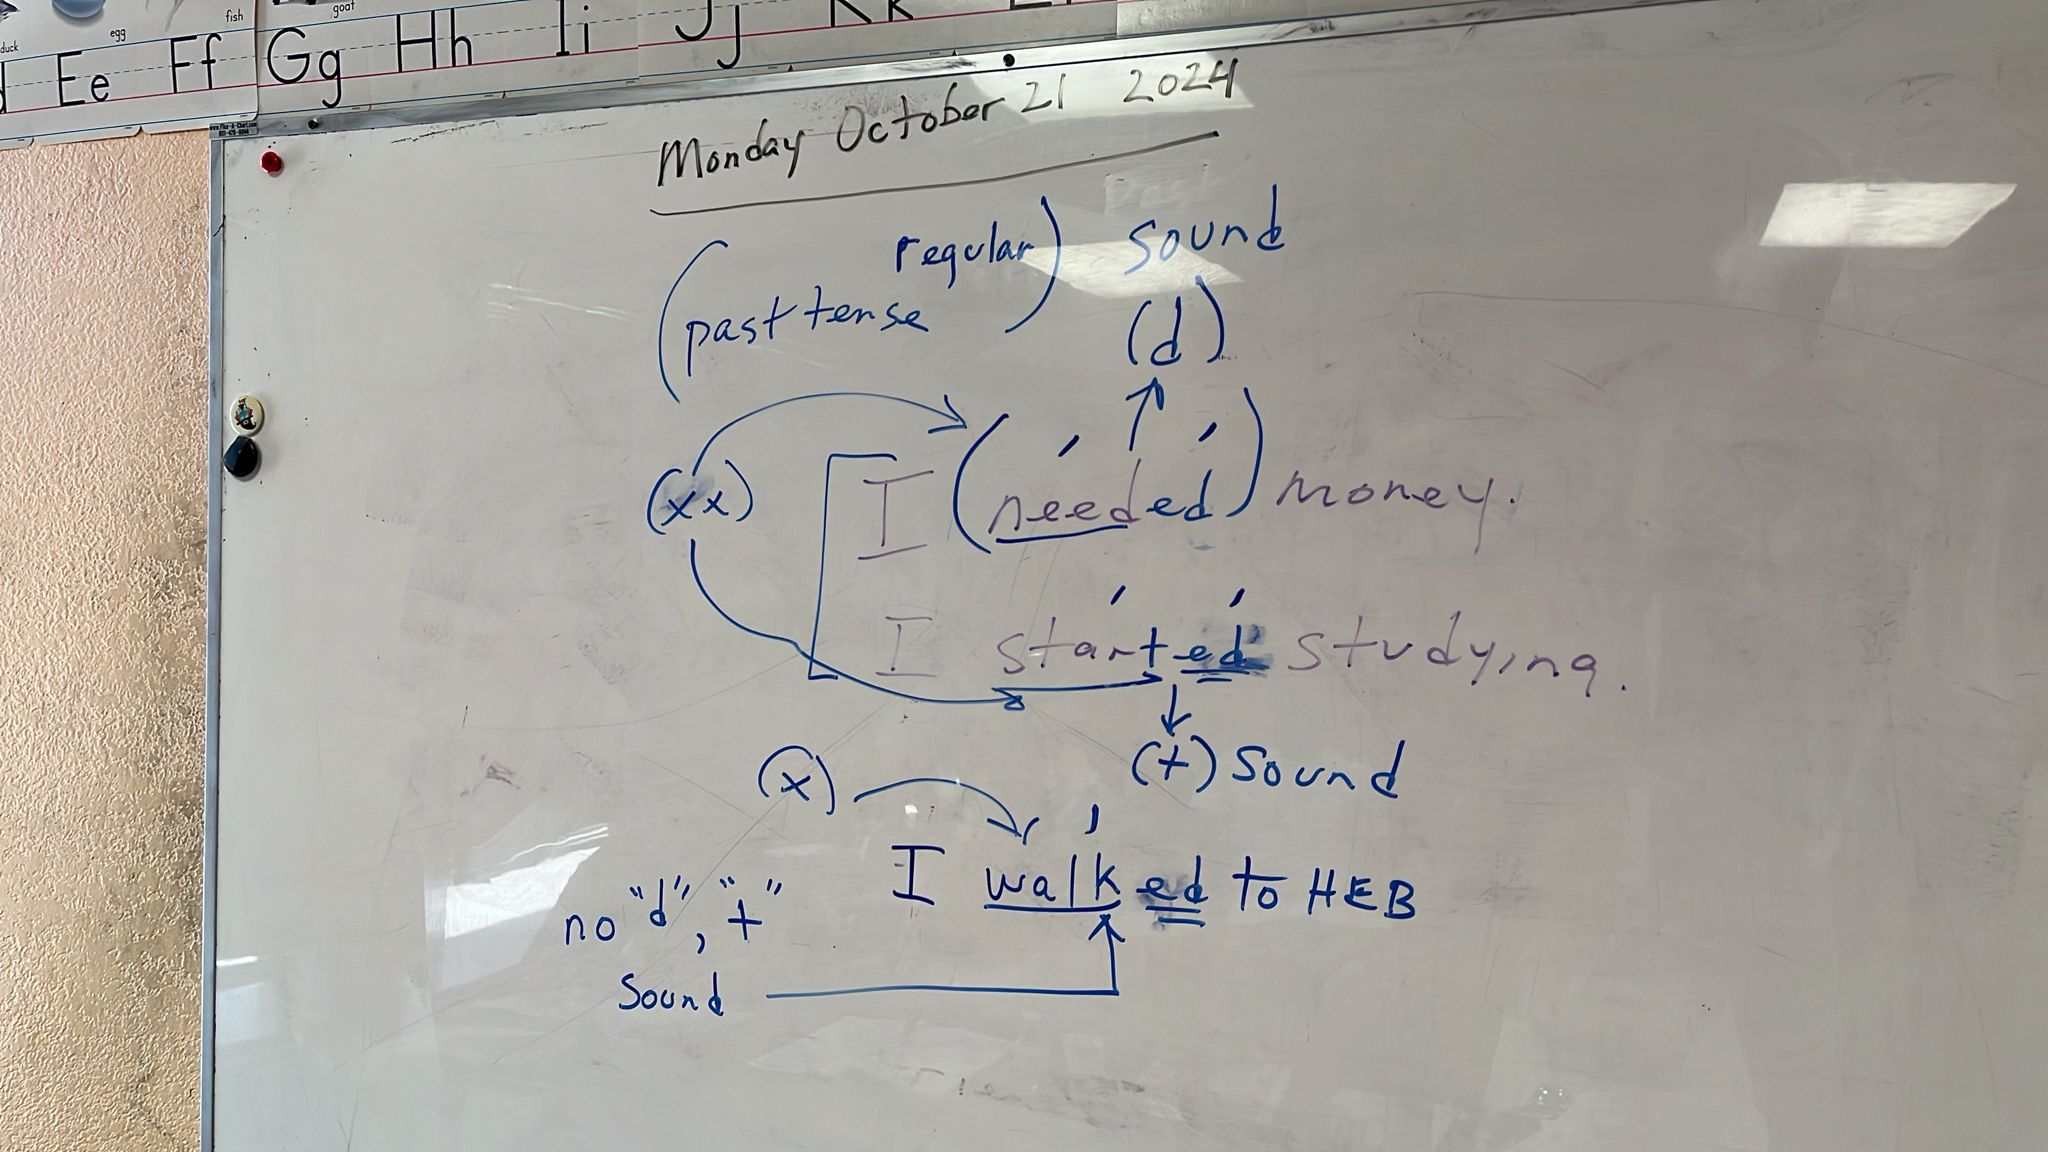 duck
egg
fish
goat
Ee Ff Gg Hh Ii Jj Kk
Monday October 21 2024
regular sound
past tense (d)
(xx) I (needed) money.
I started studying.
(t) sound
(x)
I walked to HEB
no "d", "t"
sound